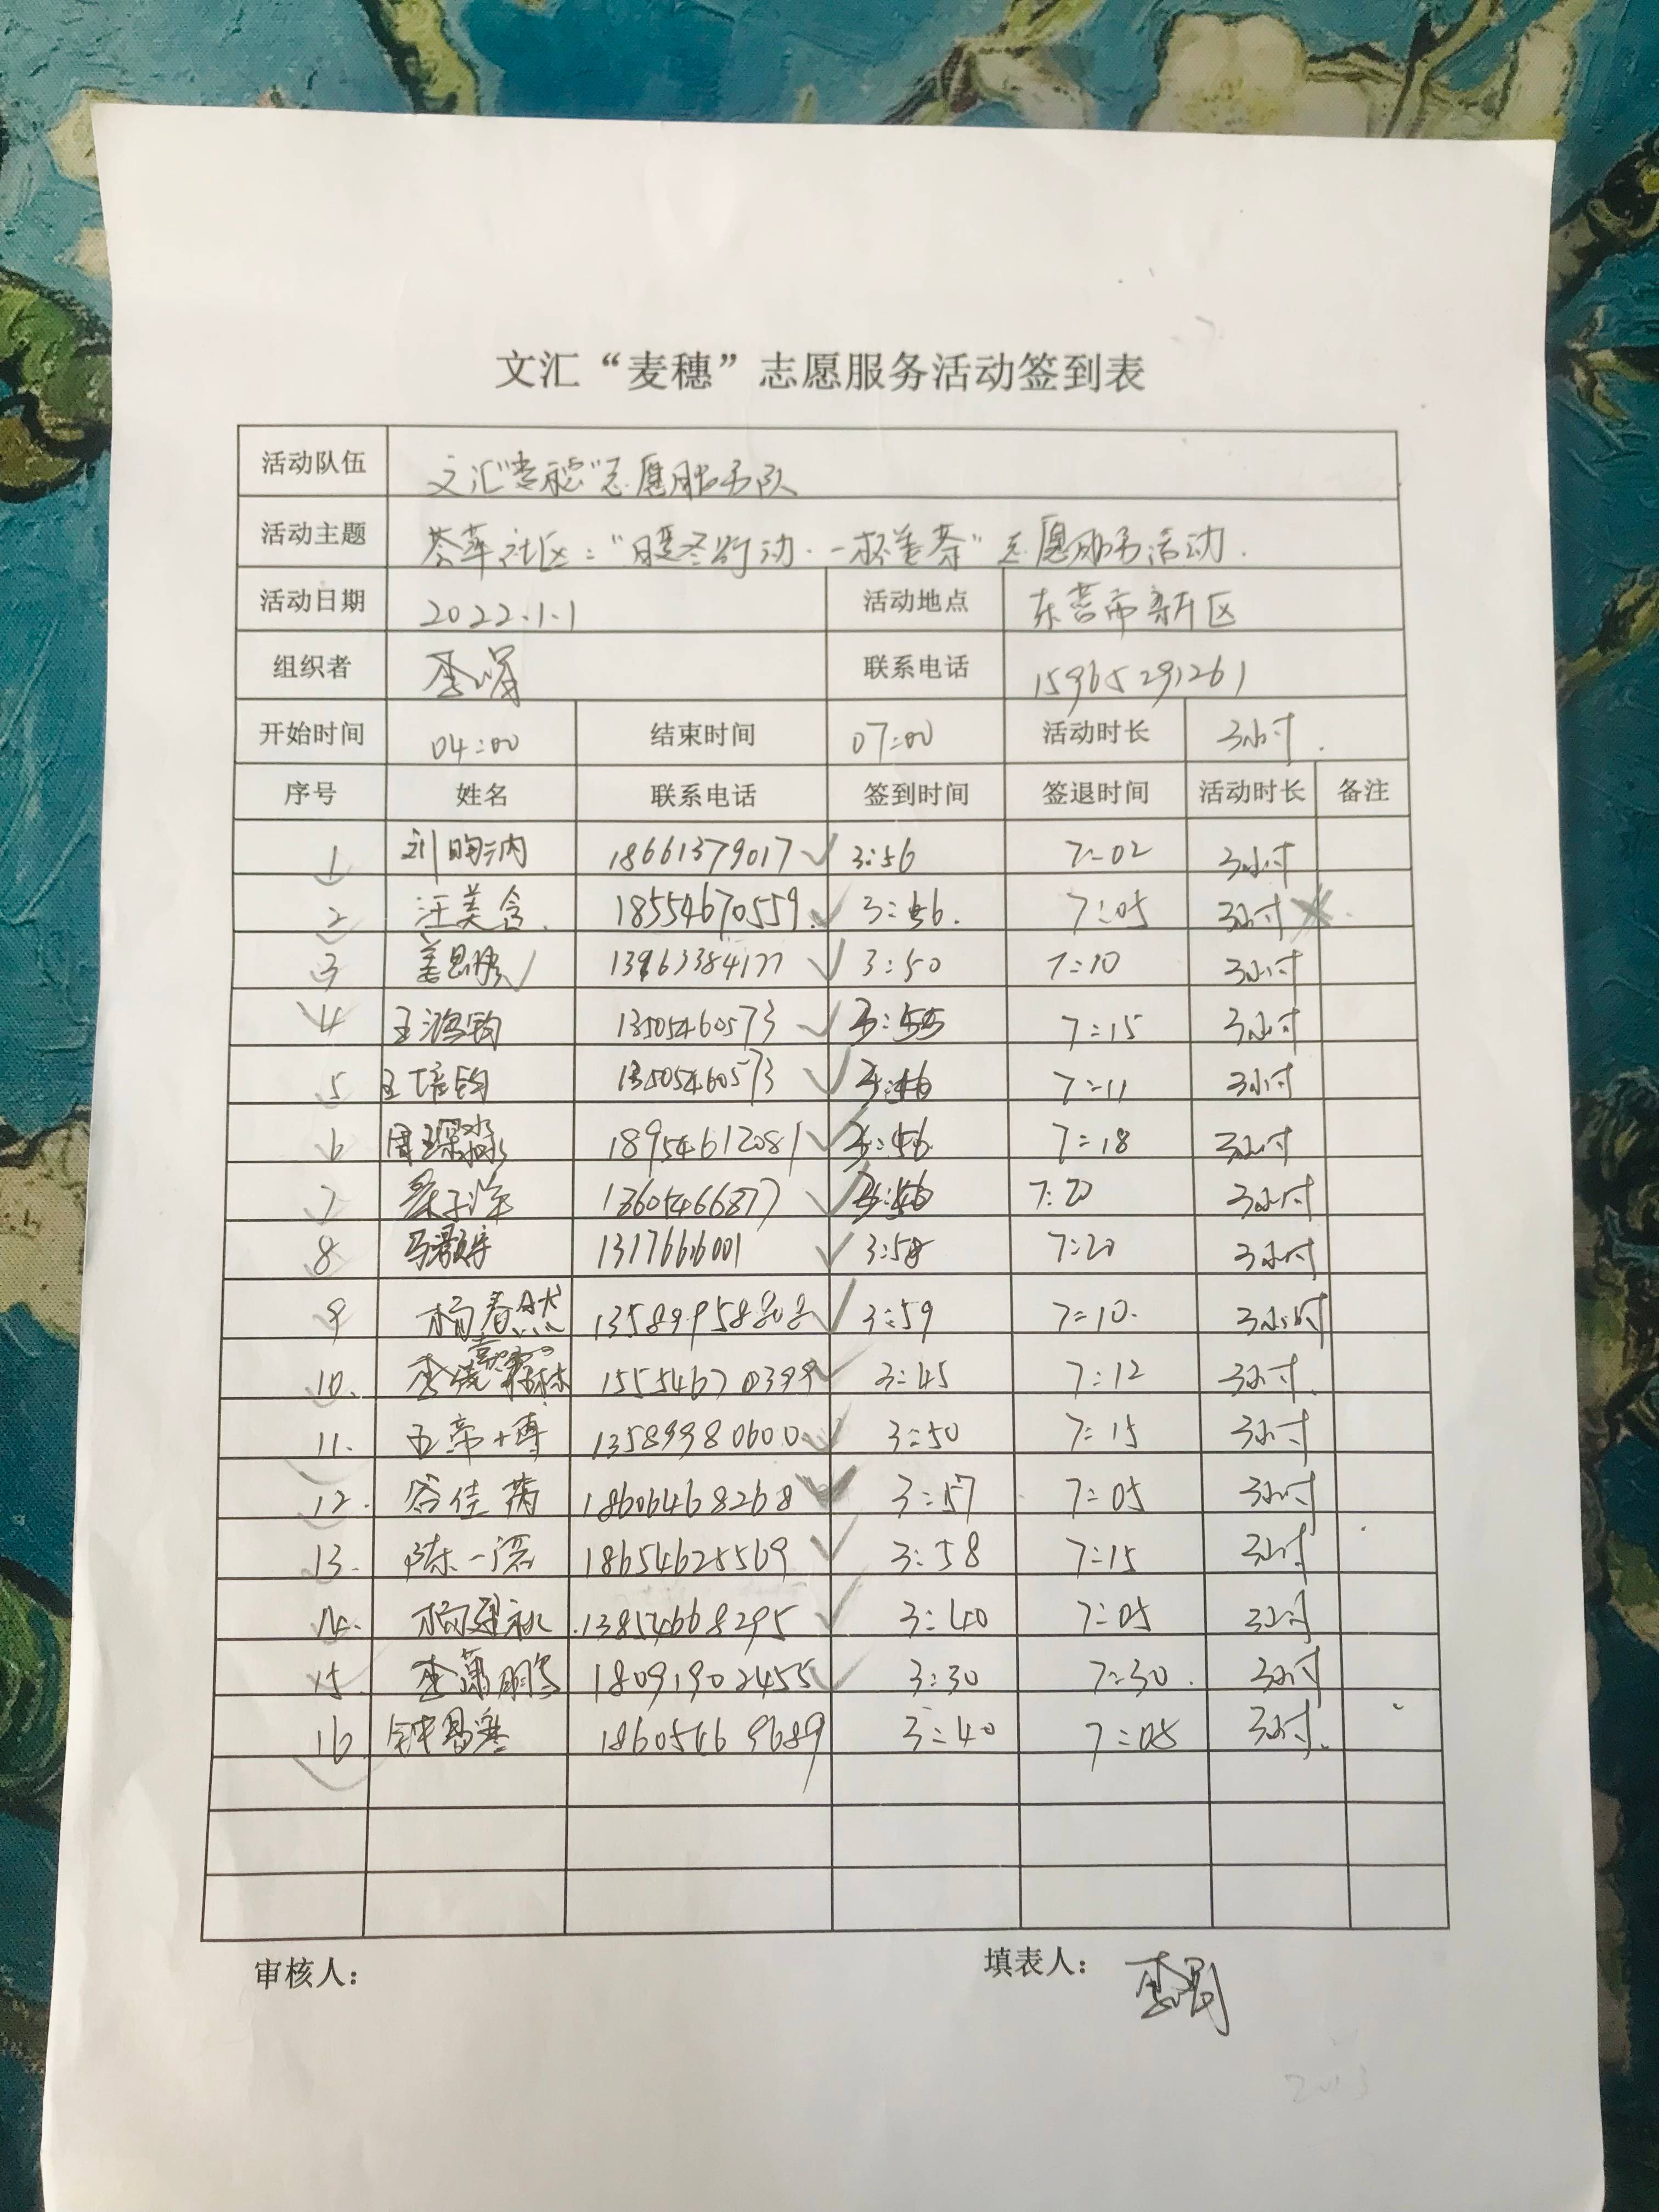 文汇“麦穗”志愿服务活动签到表
活动队伍 文汇“麦穗”志愿服务队
活动主题 荟萃社区：“暖冬行动·一杯姜茶”志愿服务活动.
活动日期 2022.1.1 活动地点 东营市新区
组织者 李 联系电话 15965291261
开始时间 04:00 结束时间 07:00 活动时长 3小时.
序号 姓名 联系电话 签到时间 签退时间 活动时长 备注
1 刘昫汭 18661379017 3:56 7:02 3小时
2 汪美含. 18554670559. 3:56. 7:05 3小时
3 姜思 13963384177 3:50 7:10 3小时
4 王鸿钧 13505460573 3:55 7:15 3小时
5 王培钧 13505460573 3:56 7:11 3小时
6 周琛淼 18954612081 3:56 7:18 3小时
7 子洋 13605466877 3:56 7:20 3小时
8 马宇 1317666001 3:58 7:20 3小时
9 杨春然 13589958808 3:59 7:10. 3小时
10. 李 15554670399 3:45 7:12 3小时.
11. 王帝博 13589980600 3:50 7:15 3小时
12. 谷佳芮 18606468268 3:57 7:05 3小时
13. 陈一 18654625569 3:58 7:15 3小时
14. 杨建 13854668295 3:40 7:05 3小时
15. 李萧鹏 18091902455 3:30 7:30. 3小时
16 钟 18605469689 3:40 7:05 3小时.
审核人： 填表人： 李